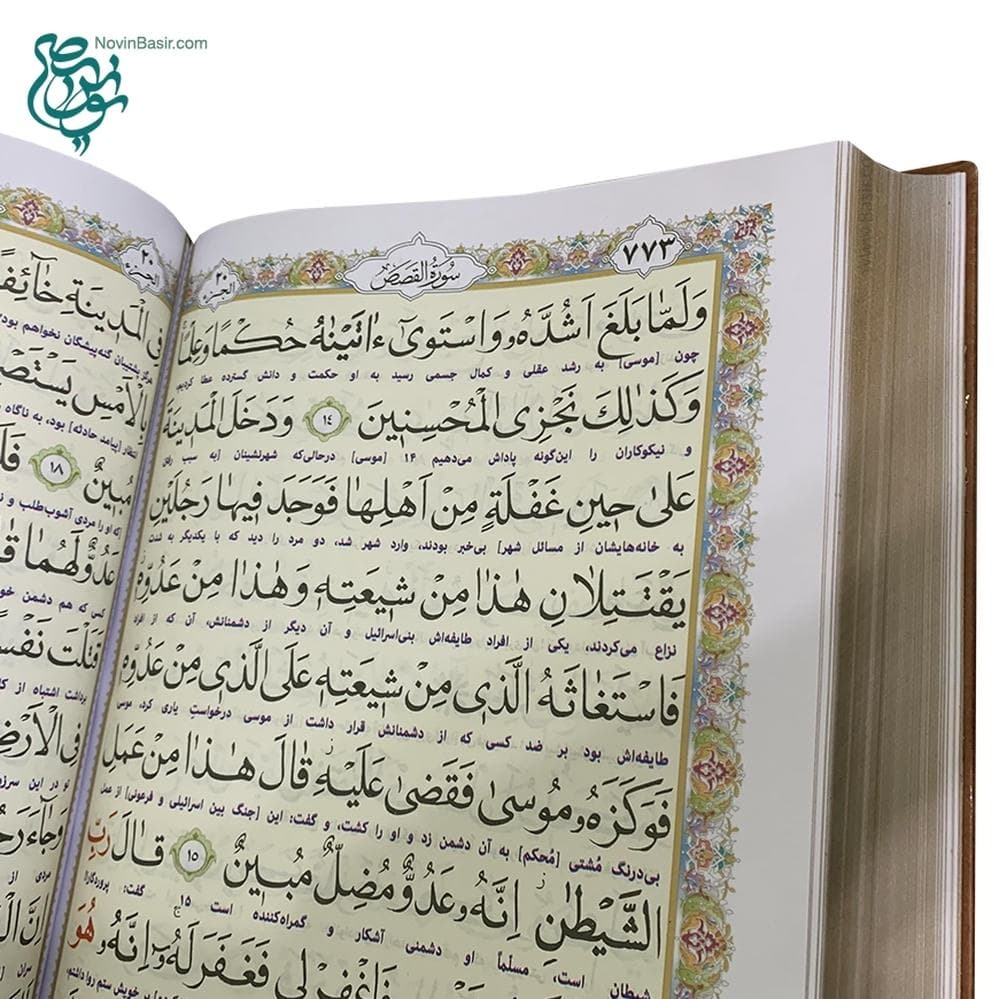 NovinBasir.com
٧٧٣
سورة القصص
الجزء ٢٠
وَلَمّا بَلَغَ اَشُدَّهُ وَاسْتَوىٰٓ ءاتَيْنٰهُ حُكْمًا وَعِلْمًا
چون [موسی] به رشد عقلی و کمال جسمی رسید به او حکمت و دانش گسترده عطا کردیم،
وَكَذٰلِكَ نَجْزِى الْمُحْسِنينَ ١٤ وَدَخَلَ الْمَدينَةَ
و نیکوکاران را این‌گونه پاداش می‌دهیم ۱۴ [موسی] درحالی‌که شهرنشینان [به سبب رفتن
عَلىٰ حينِ غَفْلَةٍ مِنْ اَهْلِها فَوَجَدَ فيها رَجُلَيْنِ
به خانه‌هایشان از مسائل شهر] بی‌خبر بودند، وارد شهر شد، دو مرد را دید که با یکدیگر به شدت
يَقْتَتِلانِ هٰذا مِنْ شيعَتِهِ وَهٰذا مِنْ عَدُوِّهِ
نزاع می‌کردند، یکی از افراد طایفه‌اش بنی‌اسرائیل و آن دیگر از دشمنانش، آن که از افراد
فَاسْتَغاثَهُ الَّذى مِنْ شيعَتِهِ عَلَى الَّذى مِنْ عَدُوِّهِ
طایفه‌اش بود بر ضد کسی که از دشمنانش قرار داشت از موسی درخواستِ یاری کرد، موسی
فَوَكَزَهُ موُسىٰ فَقَضىٰ عَلَيْهِ قالَ هٰذا مِنْ عَمَلِ
بی‌درنگ مُشتی [مُحکم] به آن دشمن زد و او را کشت، و گفت: این [جنگ بین اسرائیلی و فرعونی] از عمل
الشَّيْطٰنِ اِنَّهُ عَدُوٌّ مُضِلٌّ مُبينٌ ١٥ قالَ رَبِّ
شیطان است، مسلماً او دشمنی آشکار و گمراه‌کننده است ۱۵ گفت: پروردگارا!
فَاغْفِرْ لى فَغَفَرَ لَهُ اِنَّهُ هُوَ
بر خویش ستم روا داشتم،
٢٠ الجزء
فِى الْمَدينَةِ خآئِفًا
هرگز پشتیبان گنه‌پیشگان نخواهم بود
بِالْاَمْسِ
[پیامد حادثه] بود، به ناگاه
مُبينٌ ١٨
[که او را مردی آشوب‌طلب و
عَدُوٌّ لَهُما
کسی که هم دشمن
قَتَلْتَ نَفْسًا
برداشت اشتباه از
فِى الْاَرْضِ
تو در این
وَجآءَ رَجُلٌ
مردی از
اِنَّ
سران